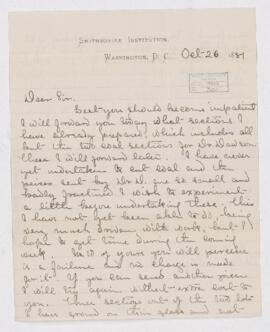 SMITHSONIAN INSTITUTION,
WASHINGTON, D. C. Oct-26 1887
Dear Sir.
Lest you should become impatient
I will forward you today what sections I
have already prepared, which includes all
but the two coal sections for Dr. Dawson
these I will forward later. I have never
yet undertaken to cut coal and the
pieces sent by Dr. D. are so small and
badly fractured I wish to experiment
a little before undertaking these, this
I have not yet been able to do, being
very much driven with work, but I
hope to get time during the coming
week. No 10 of yours you will perceive
is a failure and no charge is made
for it. If you can send another piece
I will try again without extra cost to
you. Three sections out of the two lots
I have ground on thin glass and